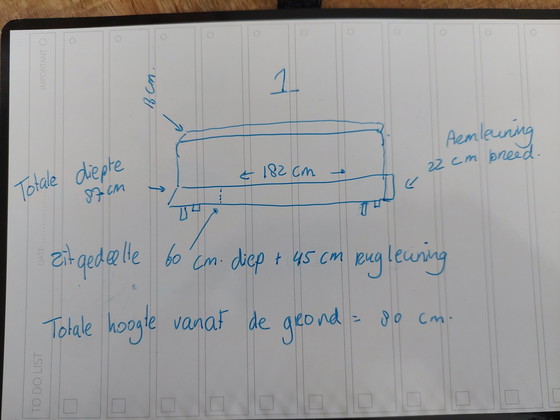 IMPORTANT
1
18 cm.
Armleuning
22 cm breed.
Totale diepte
87 cm
← 182 cm →
Zitgedeelte 60 cm. diep + 45 cm rugleuning
Totale hoogte vanaf de grond = 80 cm.
TO DO LIST